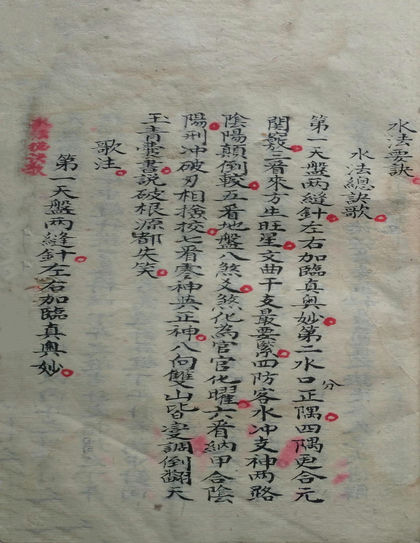 水法要訣
水法總訣歌
第一天盤两縫針左右加臨真奥妙第二水口分正隅四隅更合元
関竅三看來方生旺星文曲干支最要緊四防客水冲支神两路
陰陽顛倒較五看地盤八煞爻煞化為官官化曜六看納甲合陰
陽刑冲破刃相檢校七看零神與正神八向雙山皆變調倒翻天
玉青囊書説破根源都失笑
歌注
第一天盤两縫針左右加臨真奥妙